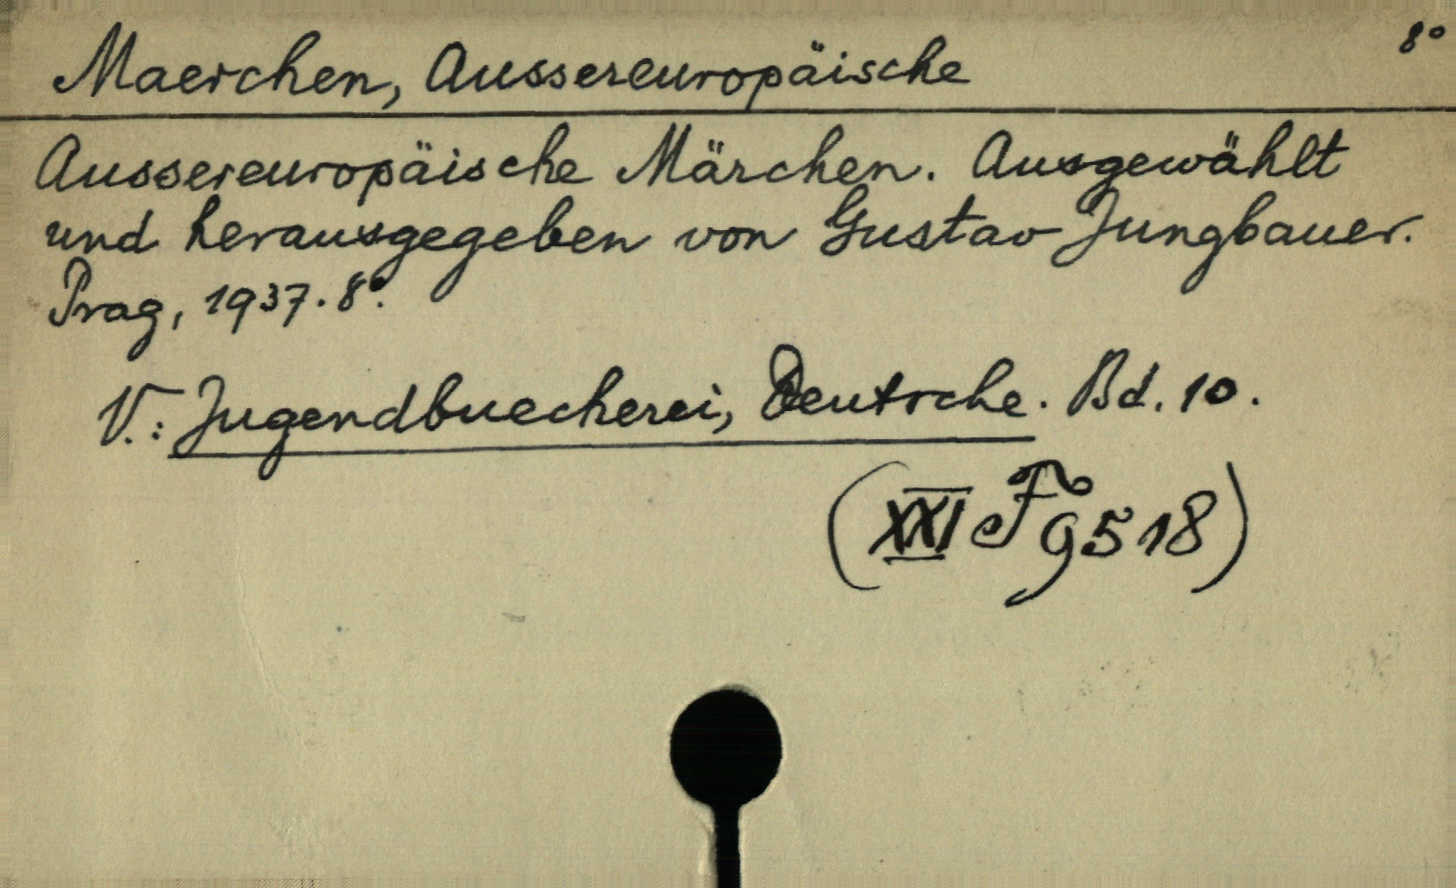 8°
Maerchen, Aussereuropäische
Aussereuropäische Märchen. Ausgewählt
und herausgegeben von Gustav Jungbauer.
Prag, 1937. 8°.
V.: Jugendbuecherei, Deutsche. Bd. 10.
(XXI F 9518)